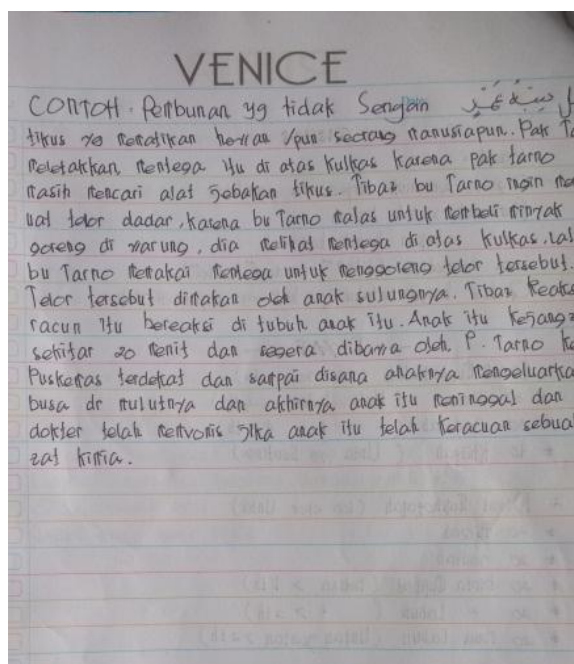 VENICE
CONTOH. Pembunan yg tidak Sengain
tikus yg mematikan hewan /pun seorang manusiapun. Pak Ta
Meletakkan, mentega itu di atas kulkas karena pak tarno
masih mencari alat Jebakan tikus. Tiba2 bu Tarno ingin me
uat telor dadar, karena bu Tarno malas untuk membeli minyak
goreng di warung, dia melihat mentega di atas kulkas. Lal
bu Tarno memakai mentega untuk menggoreng telor tersebut.
Telor tersebut dimakan oleh anak sulungnya. Tiba2 Reaks
racun itu bereaksi di tubuh anak itu. Anak itu Kejang2
sekitar 20 menit dan segera dibawa oleh. P. Tarno ke
Puskemas terdekat dan sampai disana anaknya mengeluarka
busa dr mulutnya dan akhirnya anak itu meninggal dan
dokter telah memvonis jika anak itu telah keracuan sebua
zat kimia.